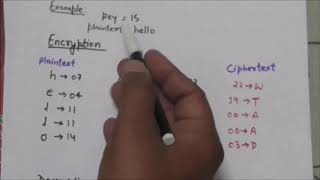 Example:
key = 15
plaintext hello
Encryption
Plaintext Ciphertext
h → 07 22 → W
e → 04 19 → T
l → 11 00 → A
l → 11 00 → A
o → 14 03 → D